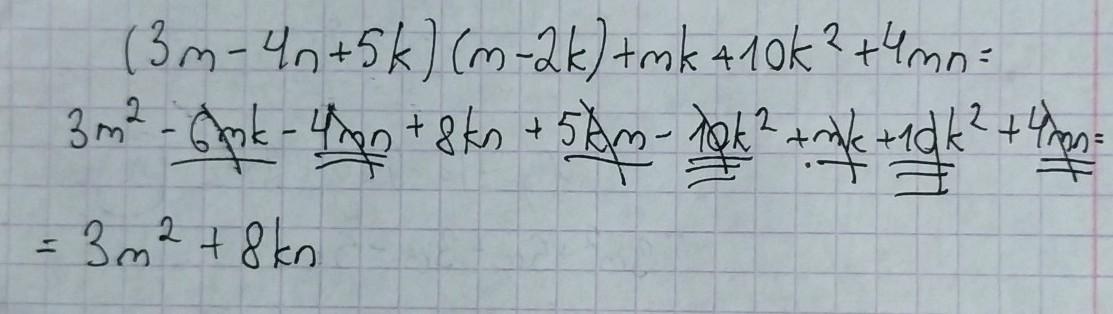 (3m-4n+5k)(m-2k)+mk+10k²+4mn=
3m²-6mk-4mn+8kn+5km-10k²+mk+10k²+4mn=
=3m²+8kn